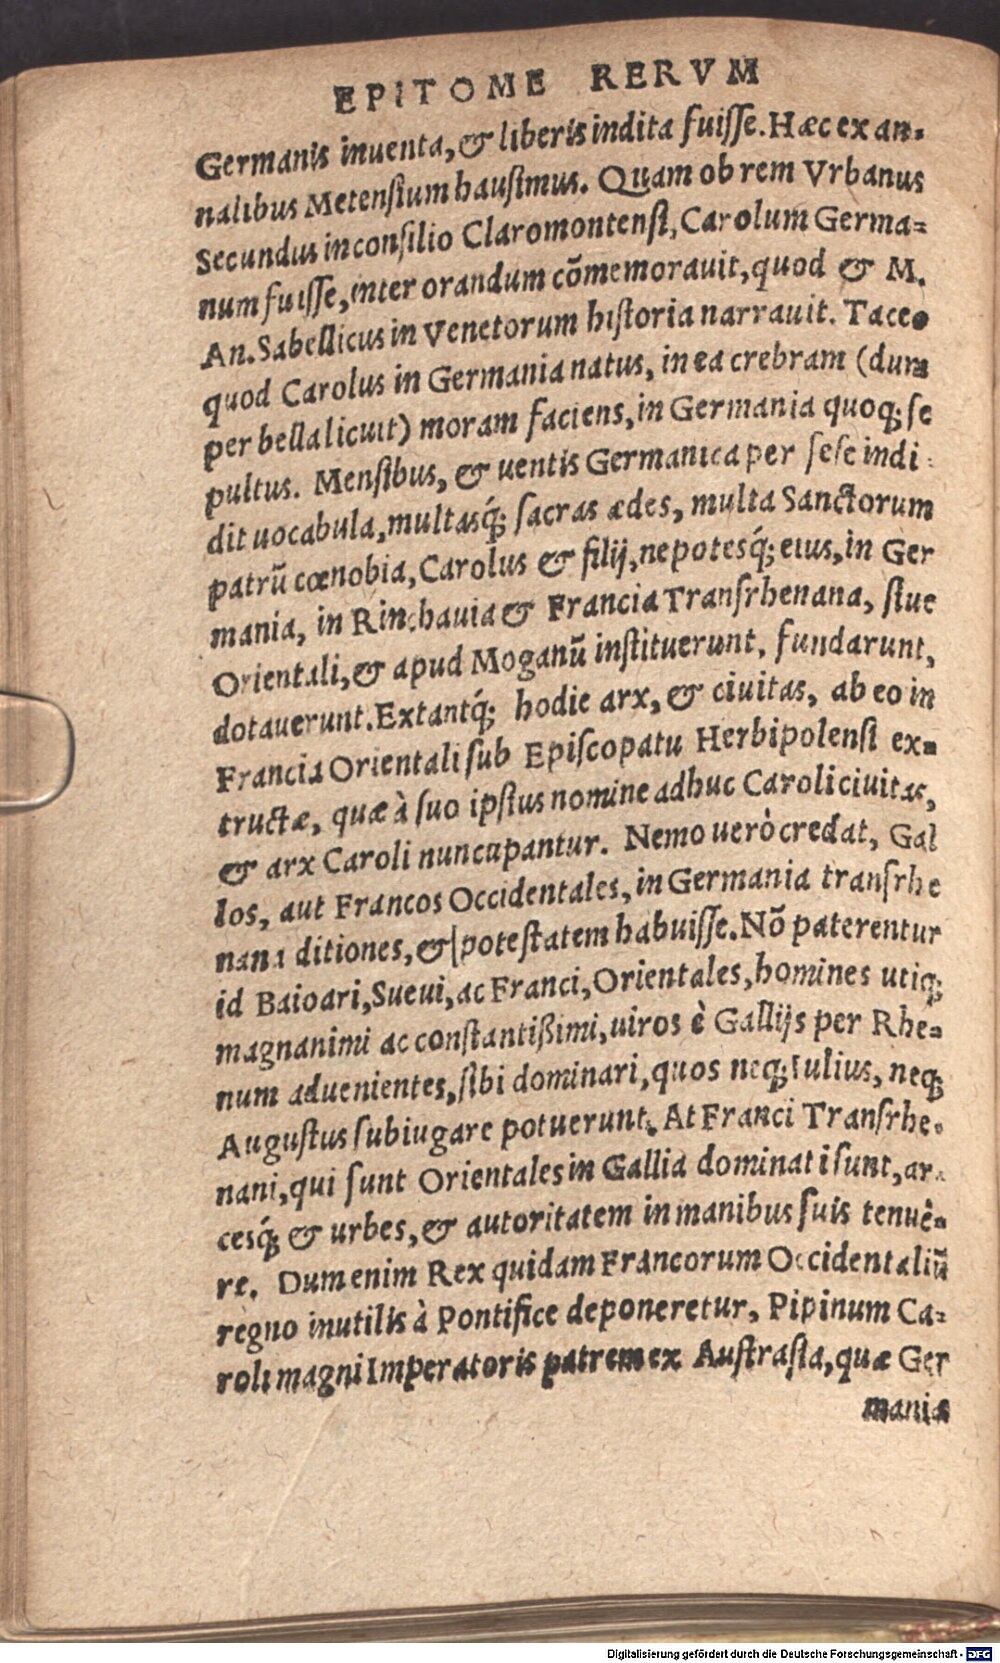 EPITOME RERVM
Germanis inuenta, & liberis indita fuisse. Hæc ex an-
nalibus Metensium hausimus. Quam ob rem Vrbanus
Secundus in consilio Claromontensi, Carolum Germa=
num fuisse, inter orandum cõmemorauit, quod & M.
An. Sabellicus in Venetorum historia narrauit. Taceo
quod Carolus in Germania natus, in ea crebram (dum
per bella licuit) moram faciens, in Germania quoq; se
pultus. Mensibus, & uentis Germanica per sese indi-
dit uocabula, multasq́; sacras ædes, multa Sanctorum
patrũ cœnobia, Carolus & filij, nepotesq́; eius, in Ger
mania, in Rinchauia & Francia Transrhenana, siue
Orientali, & apud Moganũ instituerunt, fundarunt,
dotauerunt. Extantq́; hodie arx, & ciuitas, ab eo in
Francia Orientali sub Episcopatu Herbipolensi ex=
tructæ, quæ à suo ipsius nomine adhuc Caroli ciuitas,
& arx Caroli nuncupantur. Nemo uerò credat, Gal
los, aut Francos Occidentales, in Germania transrhe
nana ditiones, & potestatem habuisse. Nõ paterentur
id Baioari, Sueui, ac Franci, Orientales, homines utiq;
magnanimi ac constantißimi, uiros è Gallijs per Rhe=
num aduenientes, sibi dominari, quos neq; Iulius, neq;
Augustus subiugare potuerunt. At Franci Transrhe-
nani, qui sunt Orientales in Gallia dominati sunt, ar-
cesq́; & urbes, & autoritatem in manibus suis tenuê=
re. Dum enim Rex quidam Francorum Occidentaliũ
regno inutilis à Pontifice deponeretur, Pipinum Ca=
roli magni Imperatoris patrem ex Austrasia, quæ Ger
mania
Digitalisierung gefördert durch die Deutsche Forschungsgemeinschaft - DFG